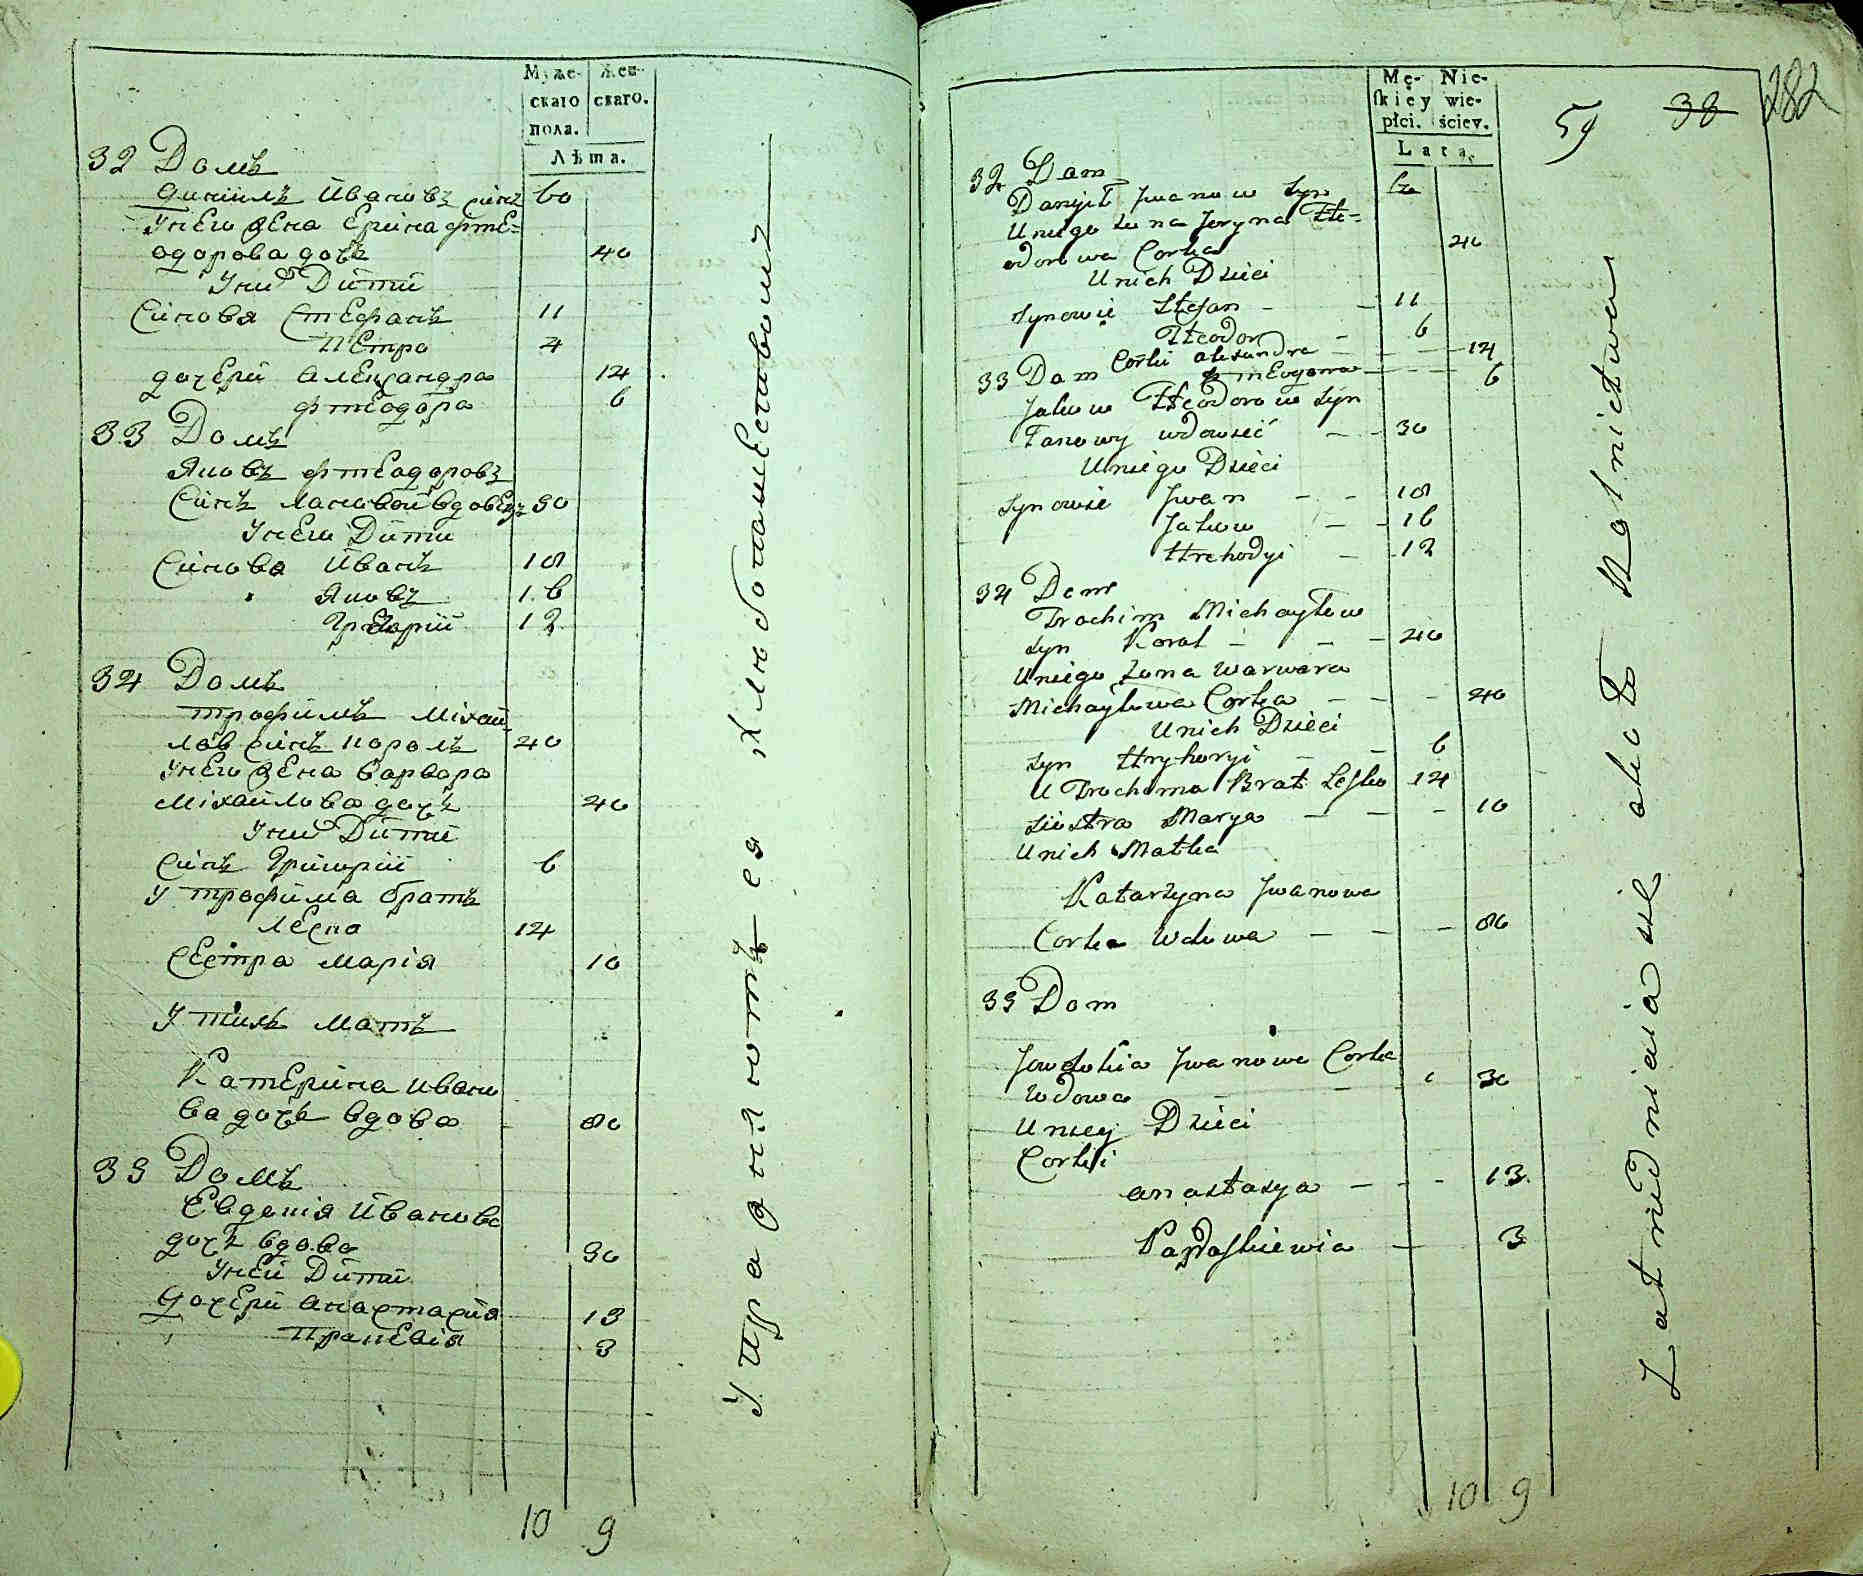 Муже- Жен-
скаго скаго.
пола.
Лѣта.
32 Домъ
Данiилъ Ивановъ синъ 60
Унего жена Ерина фте-
одорова дочь 40
Уних Дити
Синовя Стефанъ 11
Петро 4
дочери Александра 14
фтеодора 6
33 Домъ
Яковъ фтеодоровъ
Синъ Пановой вдовецъ 30
Унего Дити
Синовя Иванъ 18
Яковъ 16
Григорий 12
34 Домъ
трофимъ Михай
лов синъ Король 40
Унего жена Варвара
Михайлова дочь 40
Уних Дити
Синъ Григорий 6
У трофима братъ
Леско 14
Сестра Марія 10
У тихъ Мать
Катерина Ивано
ва дочь вдова 80
35 Домъ
Евдокія Иванова
дочь вдова 30
Уней Дити
Дочери Анастасия 13
Праксевія 3
Упражняются хлѣбопашествомъ
10 9
Mę- Nie-
skiey wie-
płci. ściey.
Lata.
59 38 282
32 Dom
Danyił Jwanow Syn 60
Uniego żona Jeryna Fte-
odorowa Corka 40
Unich Dzieci
Synowie Stefan - - 11
Fteodor - 6
Corki alexandra - - - 14
33 Dom фтеодора - - - 6
Jakow Fteodorow Syn
Panowy wdowiec - - 30
Uniego Dzieci
Synowie Jwan - - 18
Jakow - - 16
Hrehoryi - 12
34 Dom
Trochim Michayłow
Syn Korol - - - 40
Uniego żona Warwara
Michayłowa Corka - - - 40
Unich Dzieci
Syn Hryhoryi - 6
U Trochima Brat Lesko 14
Siostra Marya - - - 10
Unich Matka
Katarzyna Jwanowa
Corka Wdowa - - - 80
35 Dom
Jowdokia Jwanowa Corka
Wdowa - 30
Uniey Dzieci
Corki
anastasya - - - 13
Paraskiewia - 3
Zatrudniaia się około Rolnictwa
10 9